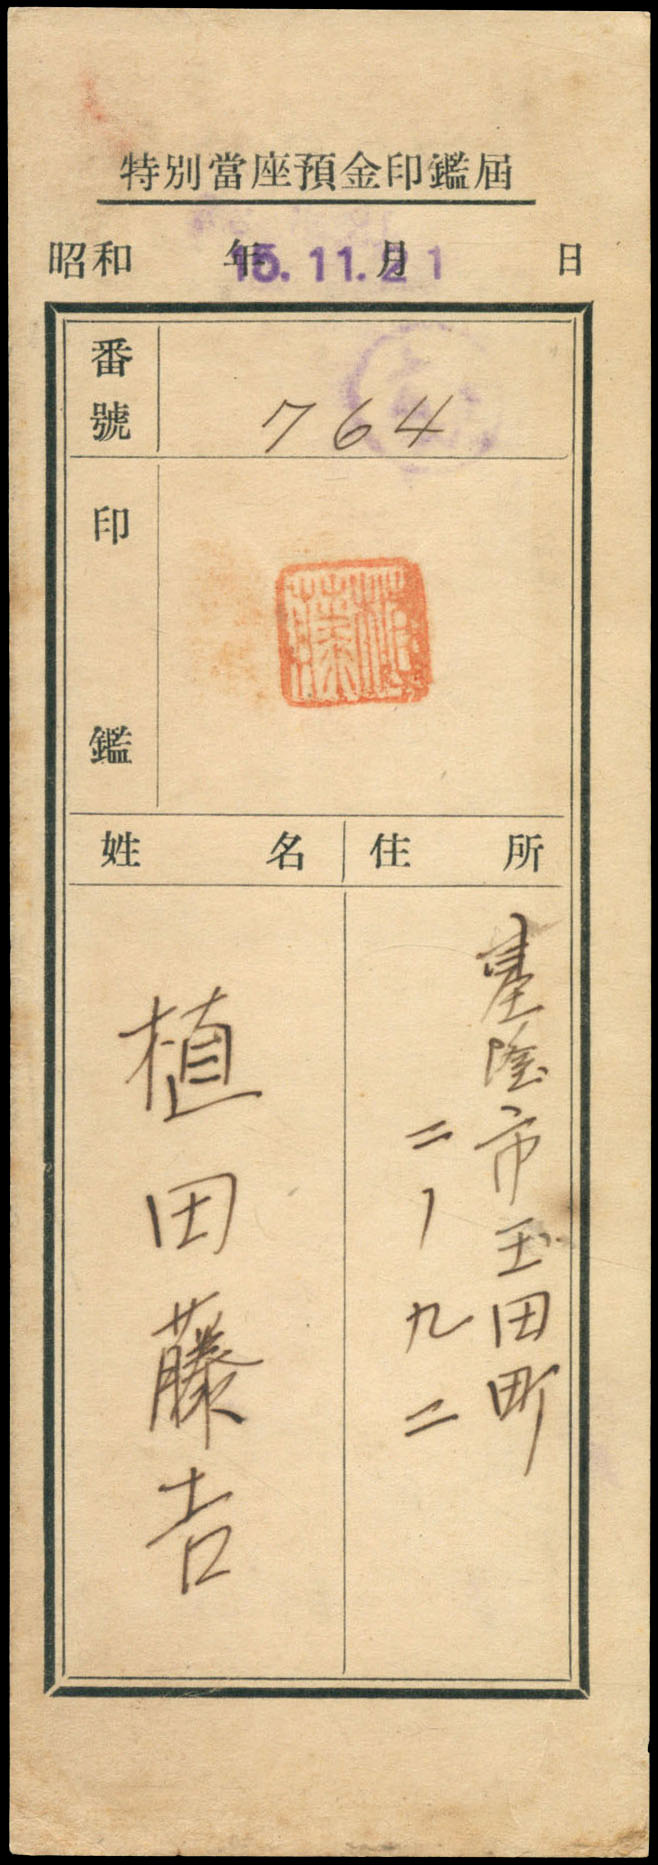 特別當座預金印鑑届
昭和 年 月 日
15.11.21
番號
764
印鑑
姓名
住所
基隆市玉田町
二ノ九二
植田藤吉